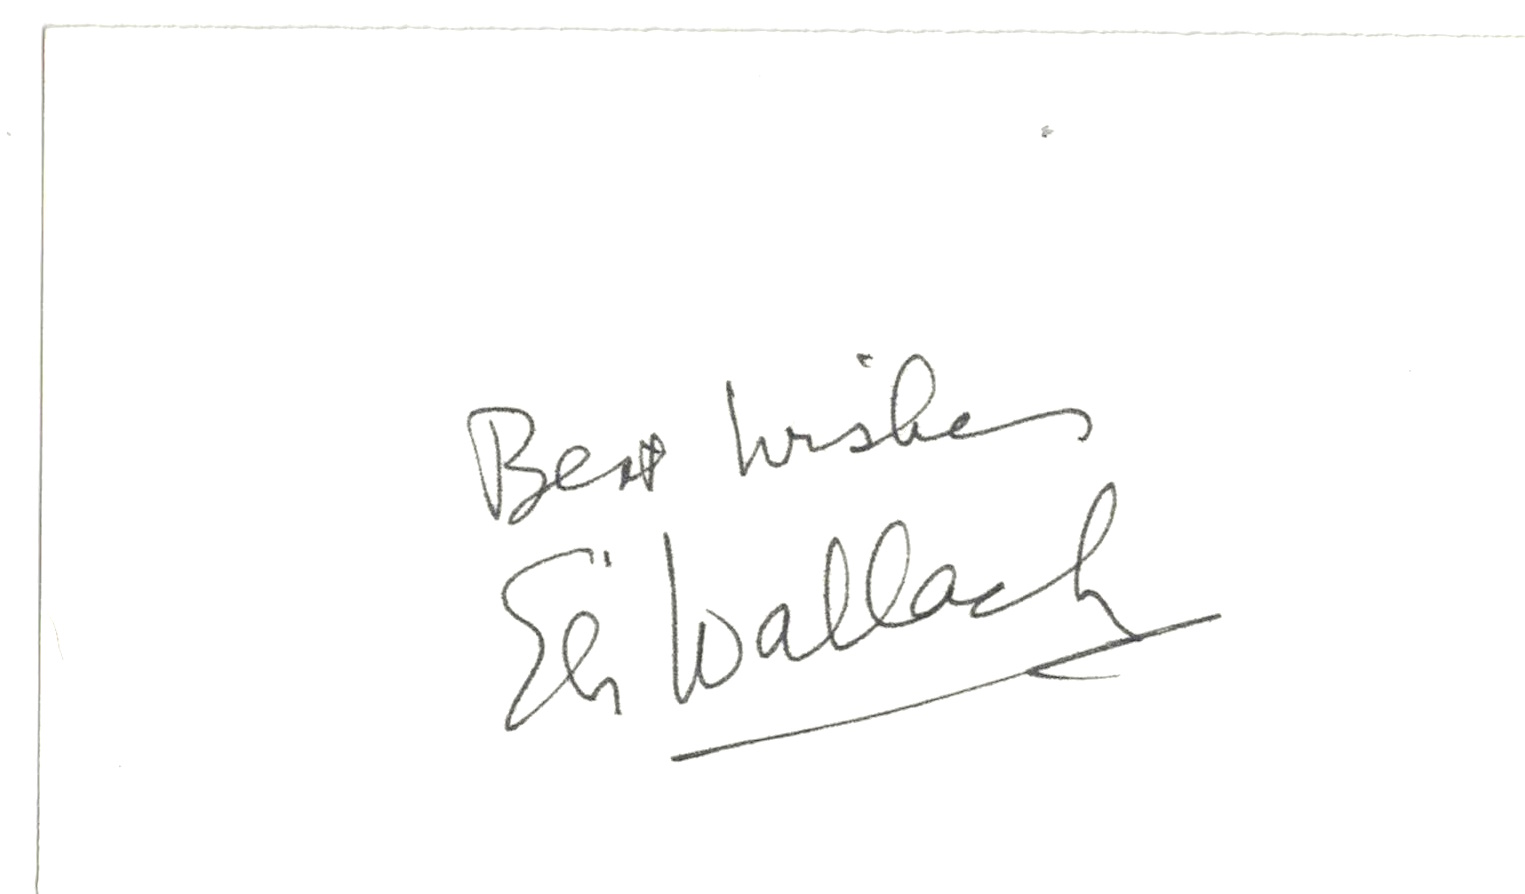 Best wishes
Eli Wallach